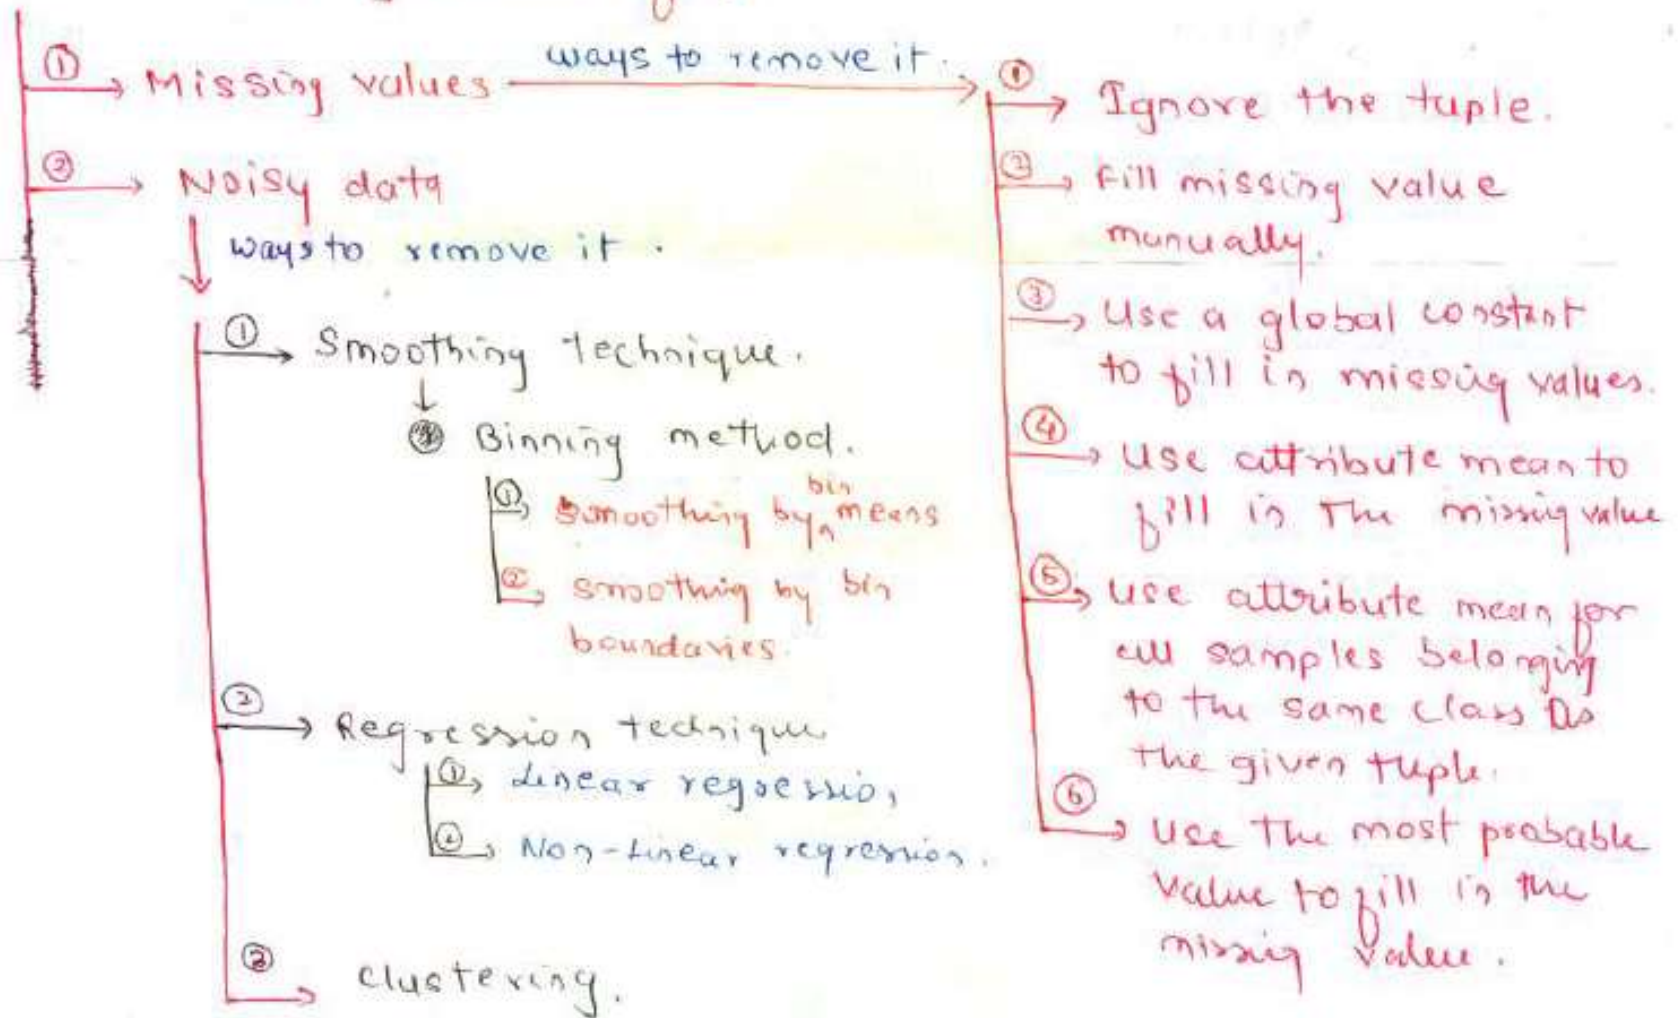 ① → Missing values ways to remove it. →
② → Noisy data
ways to remove it.
① → Smoothing technique.
↓
Binning method.
① smoothing by bin means
② smoothing by bin
boundaries.
② → Regression technique
① Linear regressio,
② Non-Linear regression.
③ → clustering.
① → Ignore the tuple.
② → Fill missing value
manually.
③ → Use a global constant
to fill in missing values.
④ → Use attribute mean to
fill in The missing value
⑤ → Use attribute mean for
all samples belonging
to the same class as
the given tuple.
⑥ → Use The most probable
value to fill in the
missing value.